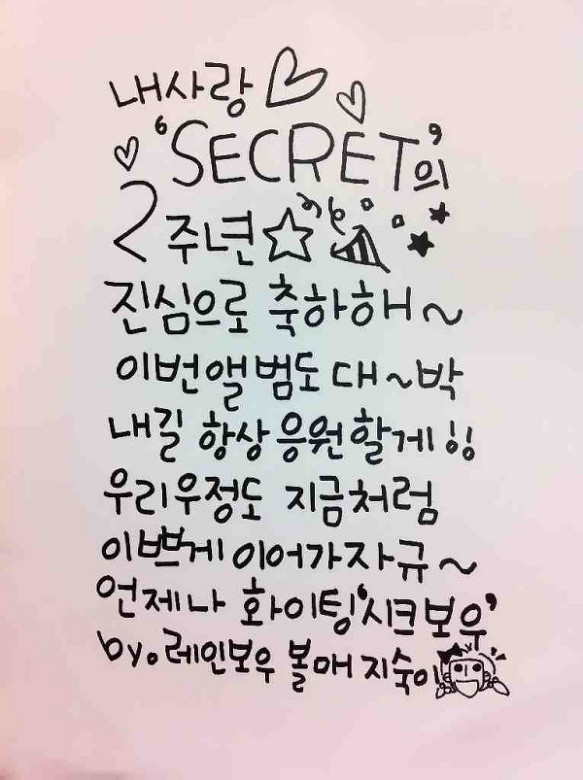 내사랑
'SECRET'의
2주년
진심으로 축하해~
이번앨범도 대~박
내길 항상 응원할게!!
우리우정도 지금처럼
이쁘게 이어가자규~
언제나 화이팅'시크보우'
by. 레인보우 볼매 지숙이